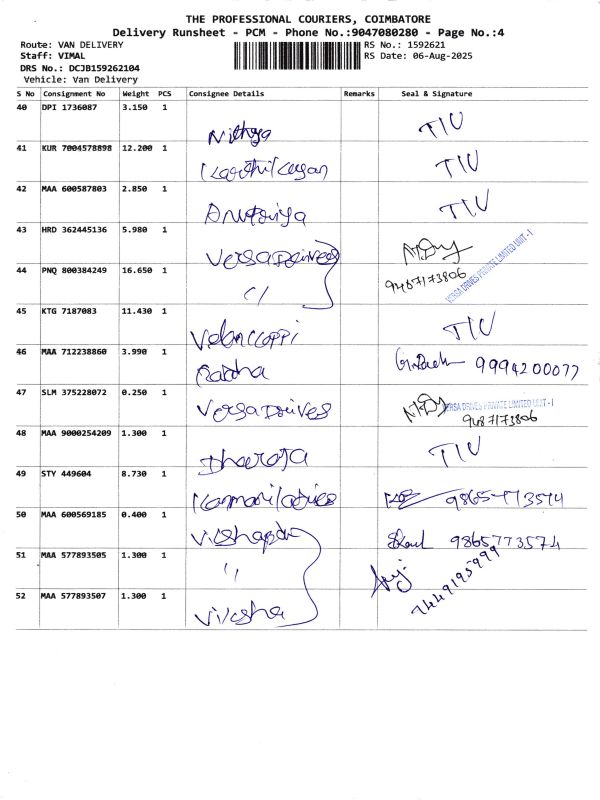 THE PROFESSIONAL COURIERS, COIMBATORE
Delivery Runsheet - PCM - Phone No.:9047080280 - Page No.:4
Route: VAN DELIVERY
RS No.: 1592621
Staff: VIMAL
RS Date: 06-Aug-2025
DRS No.: DCJB159262104
Vehicle: Van Delivery
S No Consignment No Weight PCS Consignee Details Remarks Seal & Signature
40 DPI 1736087 3.150 1
Nithya TIU
41 KUR 7004578898 12.200 1
TIU
42 MAA 600587803 2.850 1
TIU
43 HRD 362445136 5.980 1
Versa Drives
VERSA DRIVES PRIVATE LIMITED UNIT - I
44 PNQ 800384249 16.650 1
9487173806
45 KTG 7187083 11.430 1
TIU
46 MAA 712238860 3.990 1
Radha 9994200077
47 SLM 375228072 0.250 1
Versa Drives VERSA DRIVES PRIVATE LIMITED UNIT - I
9487173806
48 MAA 9000254209 1.300 1
TIU
49 STY 449604 8.730 1
50 MAA 600569185 0.400 1
9865773574
51 MAA 577893505 1.300 1
"
7449195999
52 MAA 577893507 1.300 1